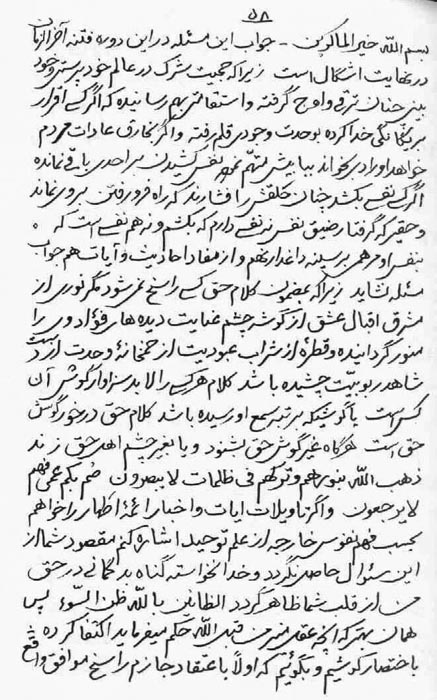 ۵۸
بسم الله خیر الماکرین - جواب این مسئله در این دوره فتنه آخر الزمان
در نهایت اشکال است زیرا که جمعیت شرک در عالم خود پرستی و خود
بینی چنان ترقی و اوج گرفته و استقلالی بهم رسانیده که اگر کسی اقرار
بر یگانگی خدا کرده بوحدت وجودی قلم رفته و اگر بخارق عادات مردم
خواهد او را دی بخواند ببابیش متهم نفس کشیدن بر احدی باقی نمانده
اگر یک نفسی بکشد چنان حلقش را فشارند که راه فرو رفتن بر وی نماند
و حقیر که گرفتار ضیق نفس نفسی دارم که بکشم و نه هم نفسی است که
بنفس او مرهمی بر سینه داغدار نهم و از مفاد احادیث و آیات هم جواب
مسئله نشاید زیرا که بمضمون کلام حق کسی راسخ نمی شود مگر نوری از
مشرق اقبال عشق از گوشه چشم عنایت دیده های فؤاد وی را
منور گردانیده و قطره از شراب عبودیت از خمخانه وحدت از دست
شاهد ربوبیت چشیده باشد کلام هر کسی را لابد سزاوار گوش آن
کس است یا گوشیکه بمرتبه سمع او رسیده باشد کلام حق در خور گوش
حق است هرگاه غیر گوش حق بشنود و یا بغیر چشم اهل حق زند
ذهب الله بنورهم و ترکهم فی ظلمات لا یبصرون صم بکم عمی فهم
لا یرجعون و اگر تاویلات ایات و اخبار ائمه اطهار را خواهم
بحسب فهم نفوس خارجه از علم توحید اشاره کنم مقصود شما از
این سئوال حاصل نگردد و خدا نخواسته گناه بد گمانی در حق
من از قلب شما ظاهر گردد الظانین بالله ظن السوء پس
همان بهتر که آنچه عقل من من قبل الله حکم میفرماید اکتفا کرده
باختصار کوشیم و بگوئیم که اولا باعتقاد جازم راسخ موافق واقع